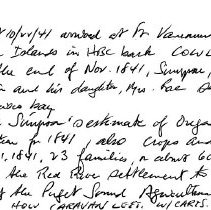 10/22/41 arrived at Ft Vancouver
Islands in HBC bark COWL
the end of Nov. 1841, Simpson,
and his daughter, Mrs. Rae
bay
Simpson's estimate of Orego
in 1841, also crops and
1841, 23 families, or about 60
the Red River Settlement to
of the Puget Sound Agricultura
HOW CARAVAN LEFT W/CARTS